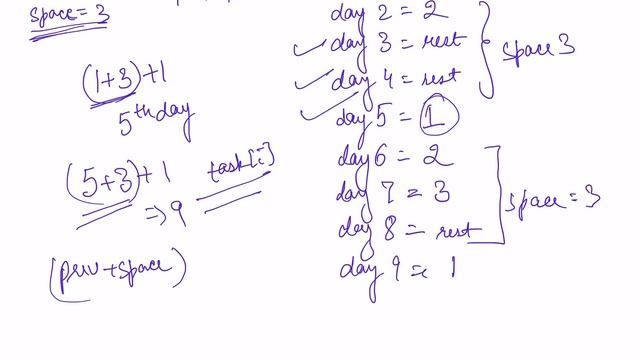 space = 3
(1+3)+1
5th day
(5+3)+1
task[i]
=> 9
(prev + space)
day 2 = 2
day 3 = rest
day 4 = rest
space 3
day 5 = 1
day 6 = 2
day 7 = 3
day 8 = rest
space = 3
day 9 = 1